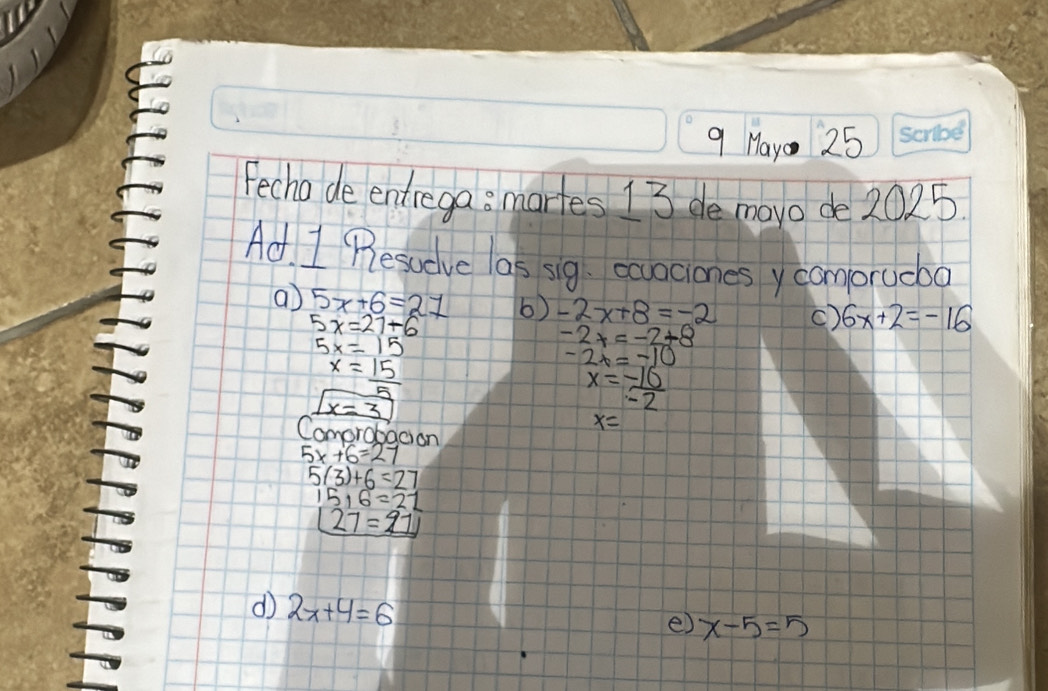 9 Mayo 25 Scribe
Fecha de entrega: martes 13 de mayo de 2025.
Act. 1 Resuelve las sig. ecuaciones y comprueba
a) 5x+6=27
5x=27+6
5x=15
x=15
5
x=3
Comprobacion
5x+6=27
5(3)+6=27
15+6=27
27=27
b) -2x+8=-2
-2x=-2+8
-2x=-10
x=-10
-2
x=
c) 6x+2=-16
d) 2x+4=6
e) x-5=5